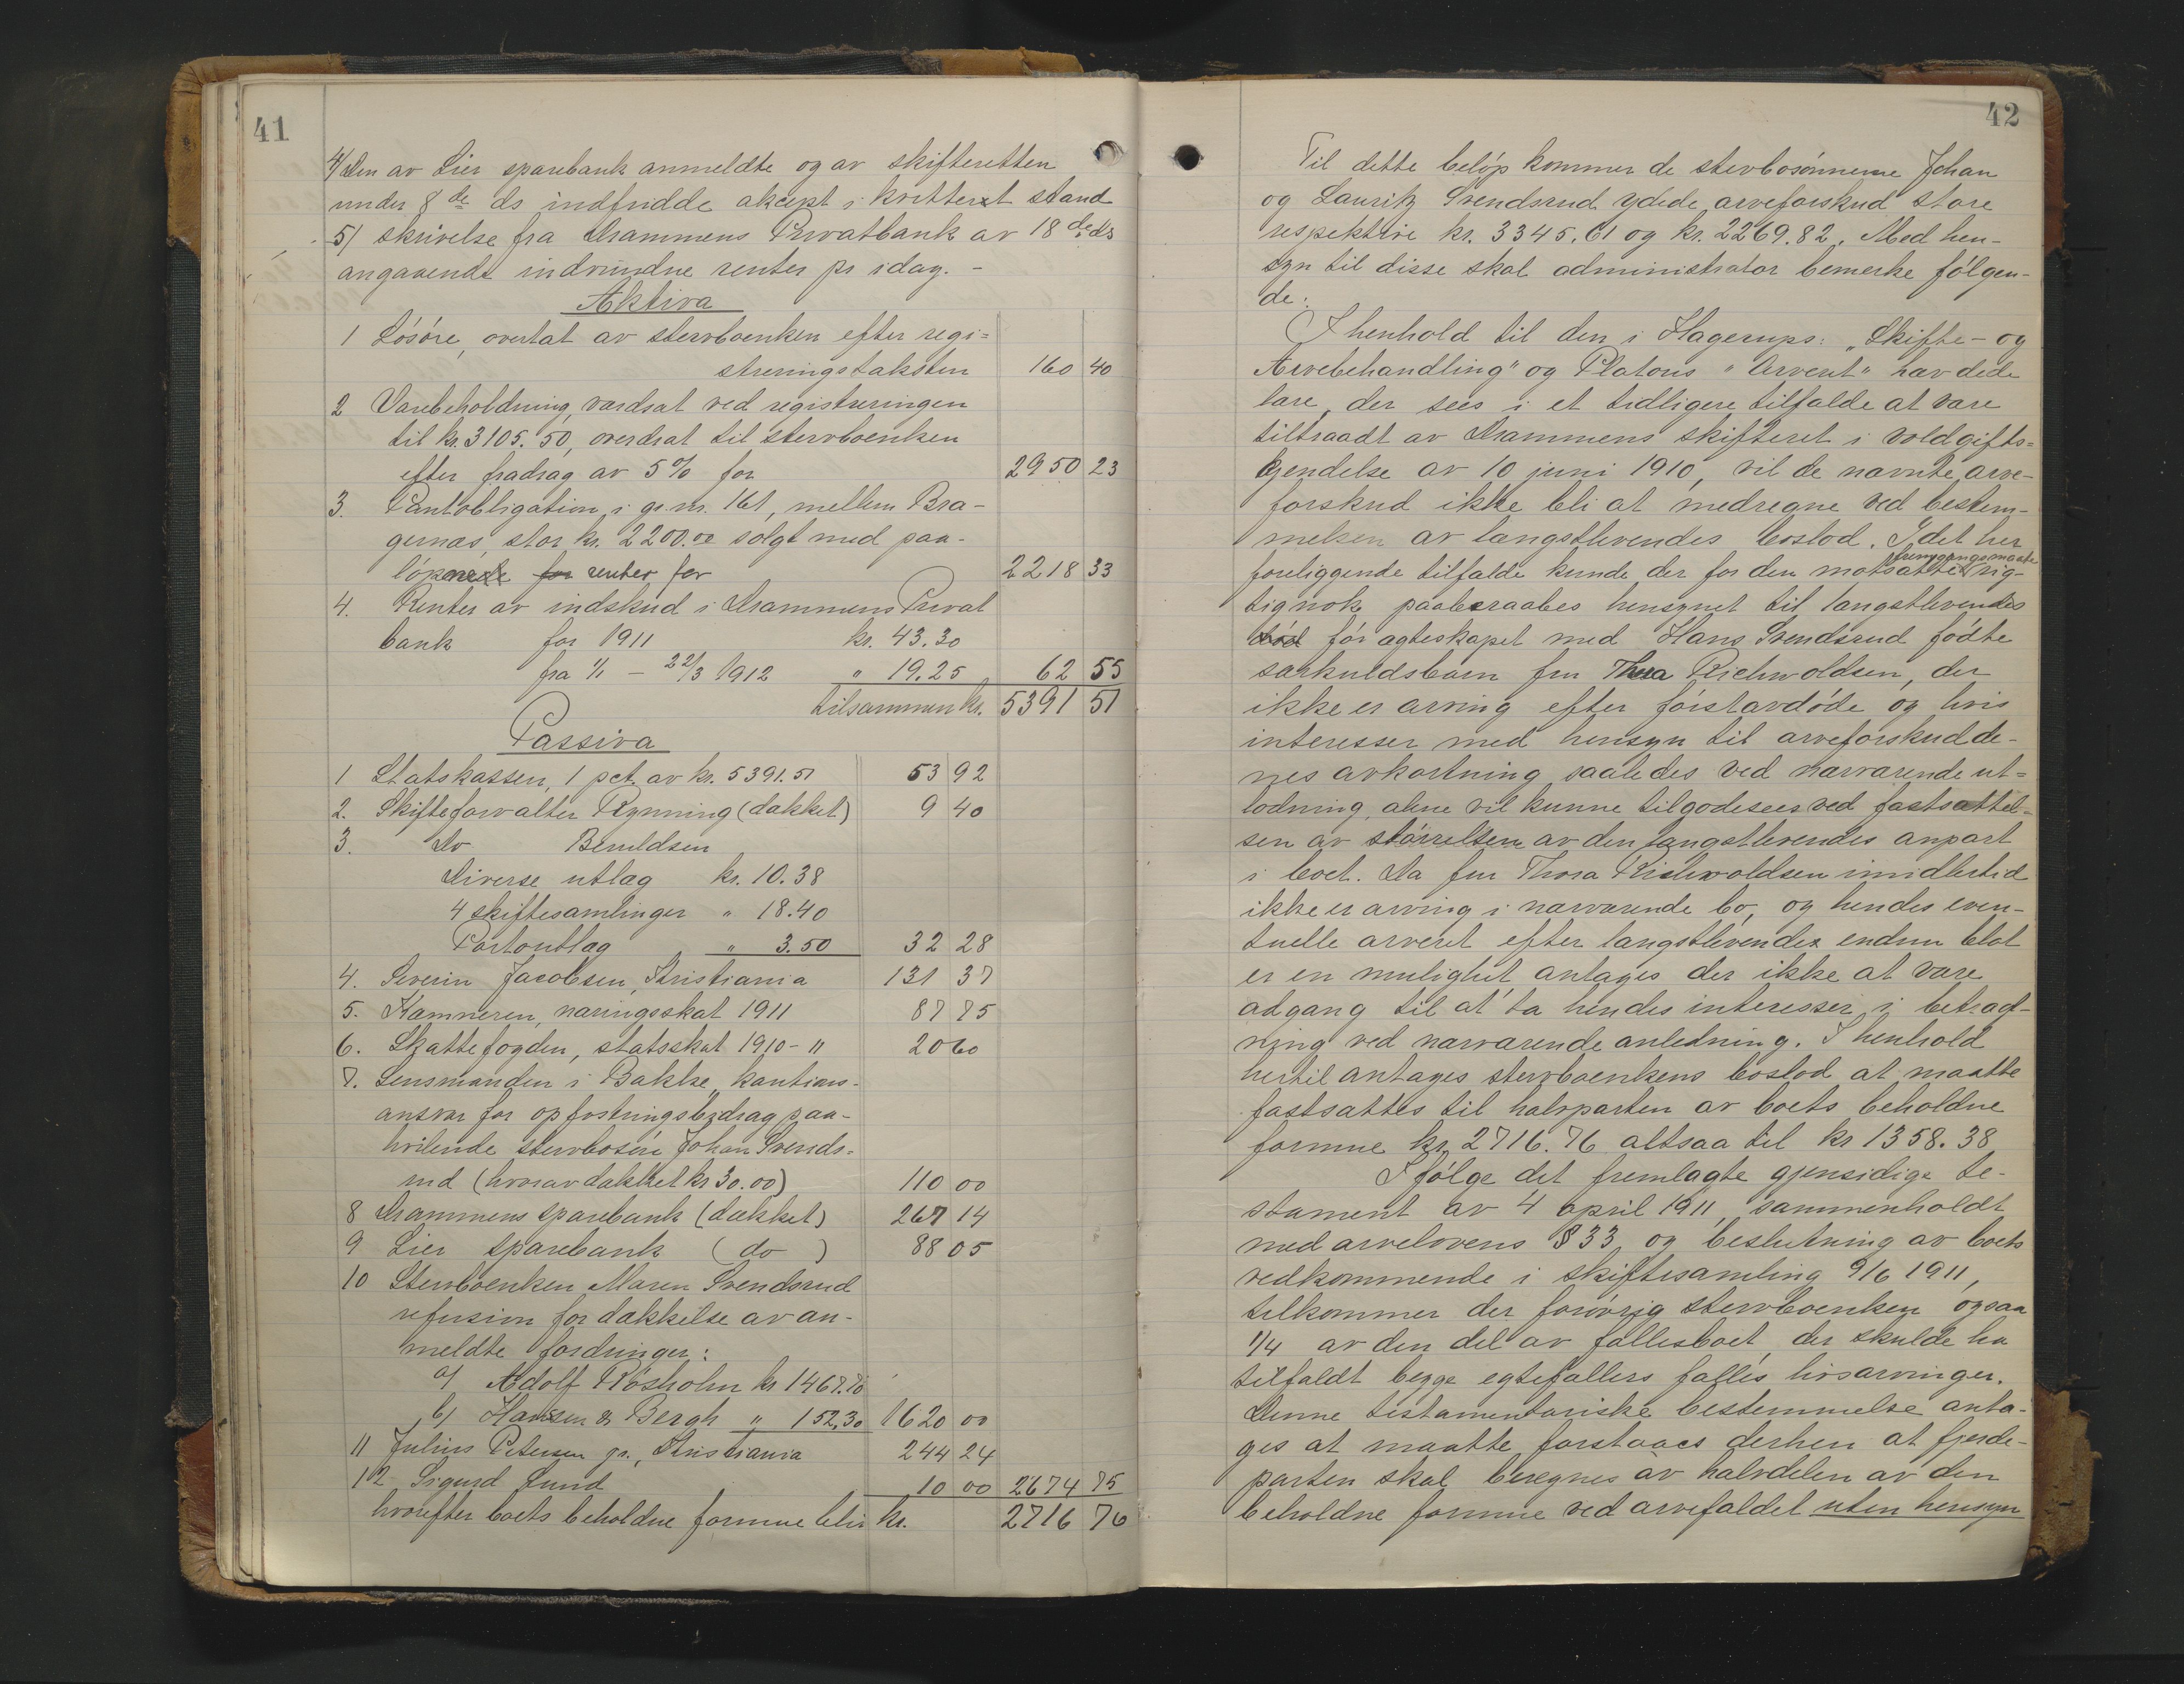 41
4/ Den av Lier sparebank anmeldte og av skifteretten
under 8de ds indfridde aksept i kvittert stand
5/ skrivelse fra Drammens Privatbank av 18de ds
angaaende indvundne renter pr idag. -
Aktiva
1 Løsøre, overtat av stervboenken efter regi=
streringstaksten 160 40
2 Varebeholdning, værdsat ved registreringen
til kr. 3105.50, overdrat til stervboenken
efter fradrag av 5% for 2950 23
3. Pantobligation i gr.nr. 161, mellem Bra-
gernæs, stor kr. 2200.00 solgt med paa-
løpende for renter for 2218 33
4. Renter av indskud i Drammens Privat
bank for 1911 kr. 43.30
fra 1/1 - 22/3 1912 " 19.25 62 55
tilsammen kr. 5391 51
Passiva
1 Statskassen, 1 pct. av kr. 5391.51 53 92
2. Skifteforvalter Rynning (dækket) 9 40
3. Do Beruldsen
Diverse utlæg kr. 10.38
4 skiftesamlinger " 18.40
Portoutlæg " 3.50 32 28
4. Severin Jacobsen, Kristiania 131 37
5. Kæmneren, næringsskat 1911 87 75
6. Skattefogden, statsskat 1910-11 20 60
7. Lensmanden i Bakke, kautions-
ansvar for opfostringsbidrag paa-
hvilende stervbosøn Johan Svends=
rud (hvorav dækket kr 30.00) 110 00
8 Drammens sparebank (dækket) 267 14
9 Lier sparebank (do) 88 05
10 Stervboenken Maren Svendsrud
refusion for dækkelse av an-
meldte fordringer:
a/ Adolf Røsholm kr 1467.70
b/ Hansen & Bergh " 152.30 1620 00
11 Julius Petersen jr., Kristiania 244 24
12 Sigurd Lund 10 00 2674 75
hvorefter boets beholdne formue blir kr. 2716 76
42
Til dette beløp kommer de stervbosønnerne Johan
og Lauritz Svendsrud ydede arveforskud store
respektive kr. 3345.61 og kr. 2269.82. Med hen-
syn til disse skal administrator bemerke følgen-
de:
I henhold til den i Hagerups: "Skifte- og
Arvebehandling" og Platous "Arveret" hævdede
lære, der sees i et tidligere tilfælde at være
tiltraadt av Drammens skifteret i voldgifts=
kjendelse av 10 juni 1910, vil de nævnte arve-
forskud ikke bli at medregne ved bestem-
melsen av længstlevendes boslod. I det her
foreliggende tilfælde kunde der for den motsatte fremgangsmaate rig-
tignok paaberaabes hensynet til længstlevendes
før ægteskapet med Hans Svendsrud fødte
særkuldsbarn fru Thora Richwoldsen, der
ikke er arving efter førstavdøde og hvis
interesser med hensyn til arveforskudde-
nes avkortning saaledes ved nærværende ut=
lodning, alene vil kunne tilgodesees ved fastsættel-
sen av størrelsen av den længstlevendes anpart
i boet. Da fru Thora Richwoldsen imidlertid
ikke er arving i nærværende bo, og hendes even-
tuelle arveret efter længstlevende endnu blot
er en mulighet, antages der ikke at være
adgang til at ta hendes interesser i betragt-
ning ved nærværende anledning. I henhold
hertil antages stervboenkens boslod at maatte
fastsættes til halvparten av boets beholdne
formue kr. 2716.76 altsaa til kr 1358.38
Ifølge det fremlagte gjensidige te-
stament av 4 april 1911, sammenholdt
med arvelovens § 33 og beslutning av boets
vedkommende i skiftesamling 9/6 1911,
tilkommer der forøvrig stervboenken ogsaa
1/4 av den del av fællesboet, der skulde ha
tilfaldt begge egtefællers fælles livsarvinger.
Denne testamentariske bestemmelse anta-
ges at maatte forstaaes derhen at fjerde-
parten skal beregnes av halvdelen av den
beholdne formue ved arvefaldet uten hensyn